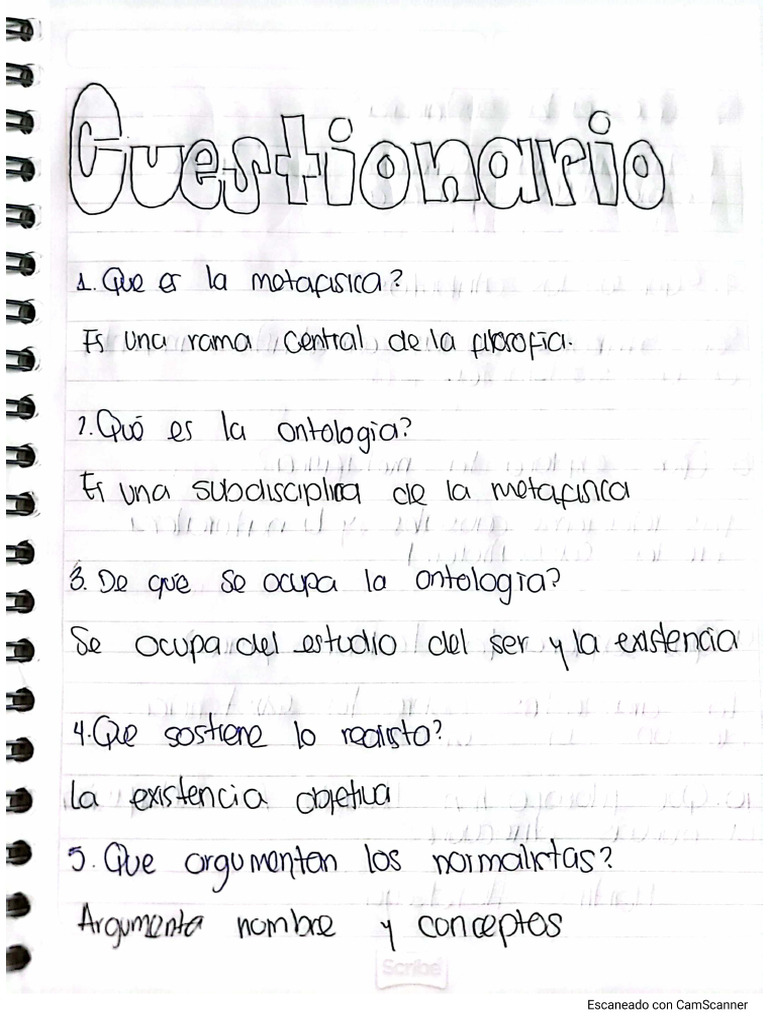 Cuestionario
1. Que es la metafisica?
Es una rama central de la filosofia.
2. Qué es la ontologia?
Es una subdisciplina de la metafisica
3. De que se ocupa la ontologia?
Se ocupa del estudio del ser y la existencia
4. Que sostiene lo realisto?
La existencia objetiva
5. Que argumentan los normalistas?
Argumenta nombre y conceptos
Scribe
Escaneado con CamScanner